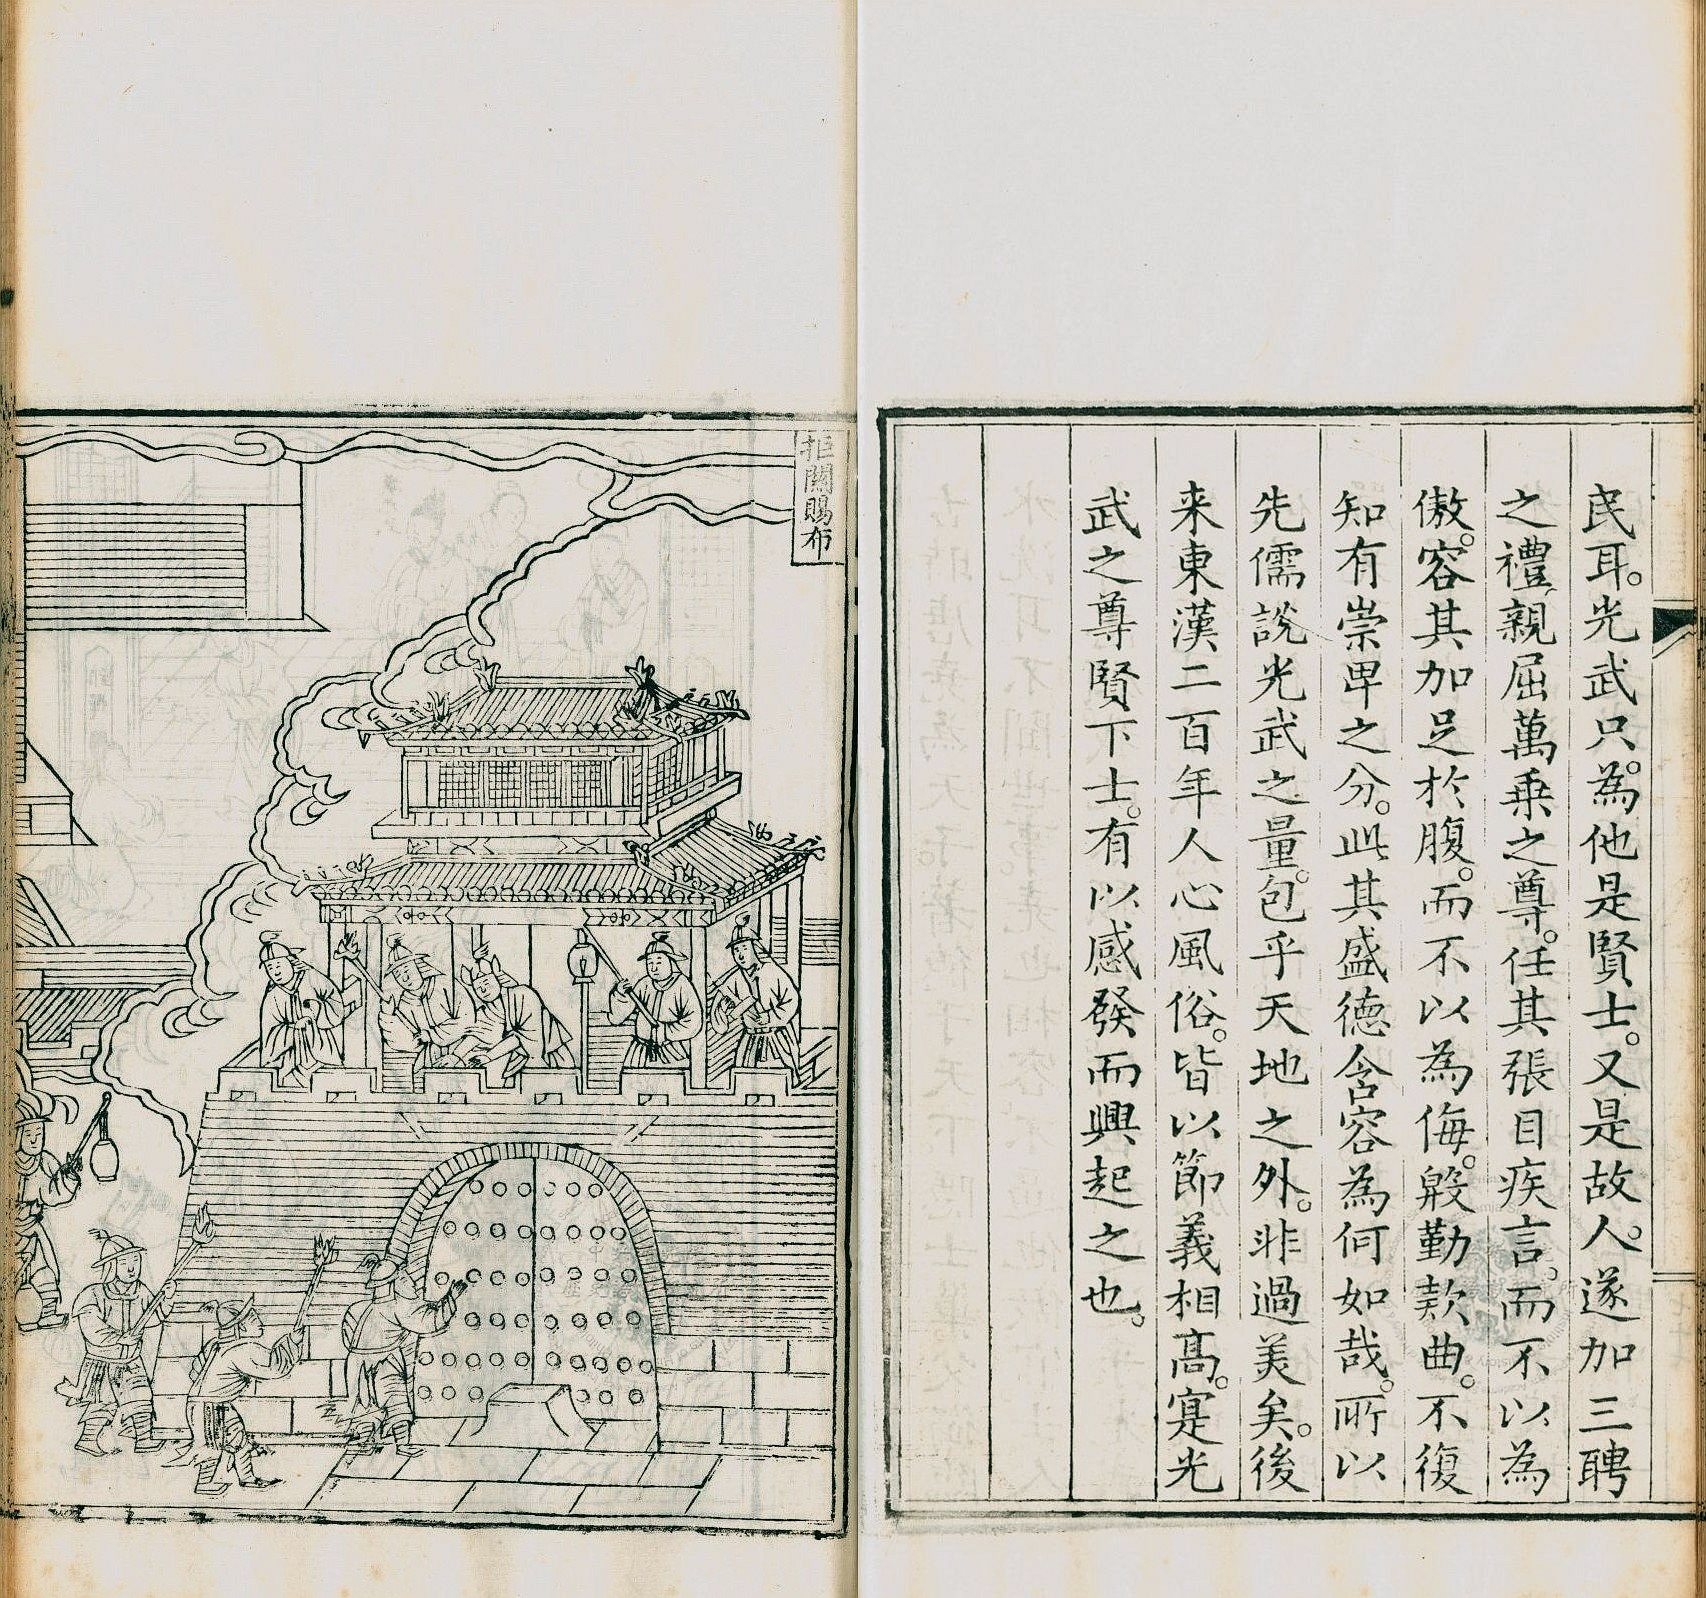 民耳。光武只為他是賢士。又是故人。遂加三聘
之禮、親屈萬乗之尊。任其張目疾言。而不以為
傲。容其加足於腹。而不以為侮。殷勤款曲。不復
知有崇卑之分。此其盛德含容為何如哉。所以
先儒說光武之量。包乎天地之外。非過美矣。後
来東漢二百年人心風俗。皆以節義相高。寔光
武之尊賢下士。有以感發而興起之也。
拒關賜布